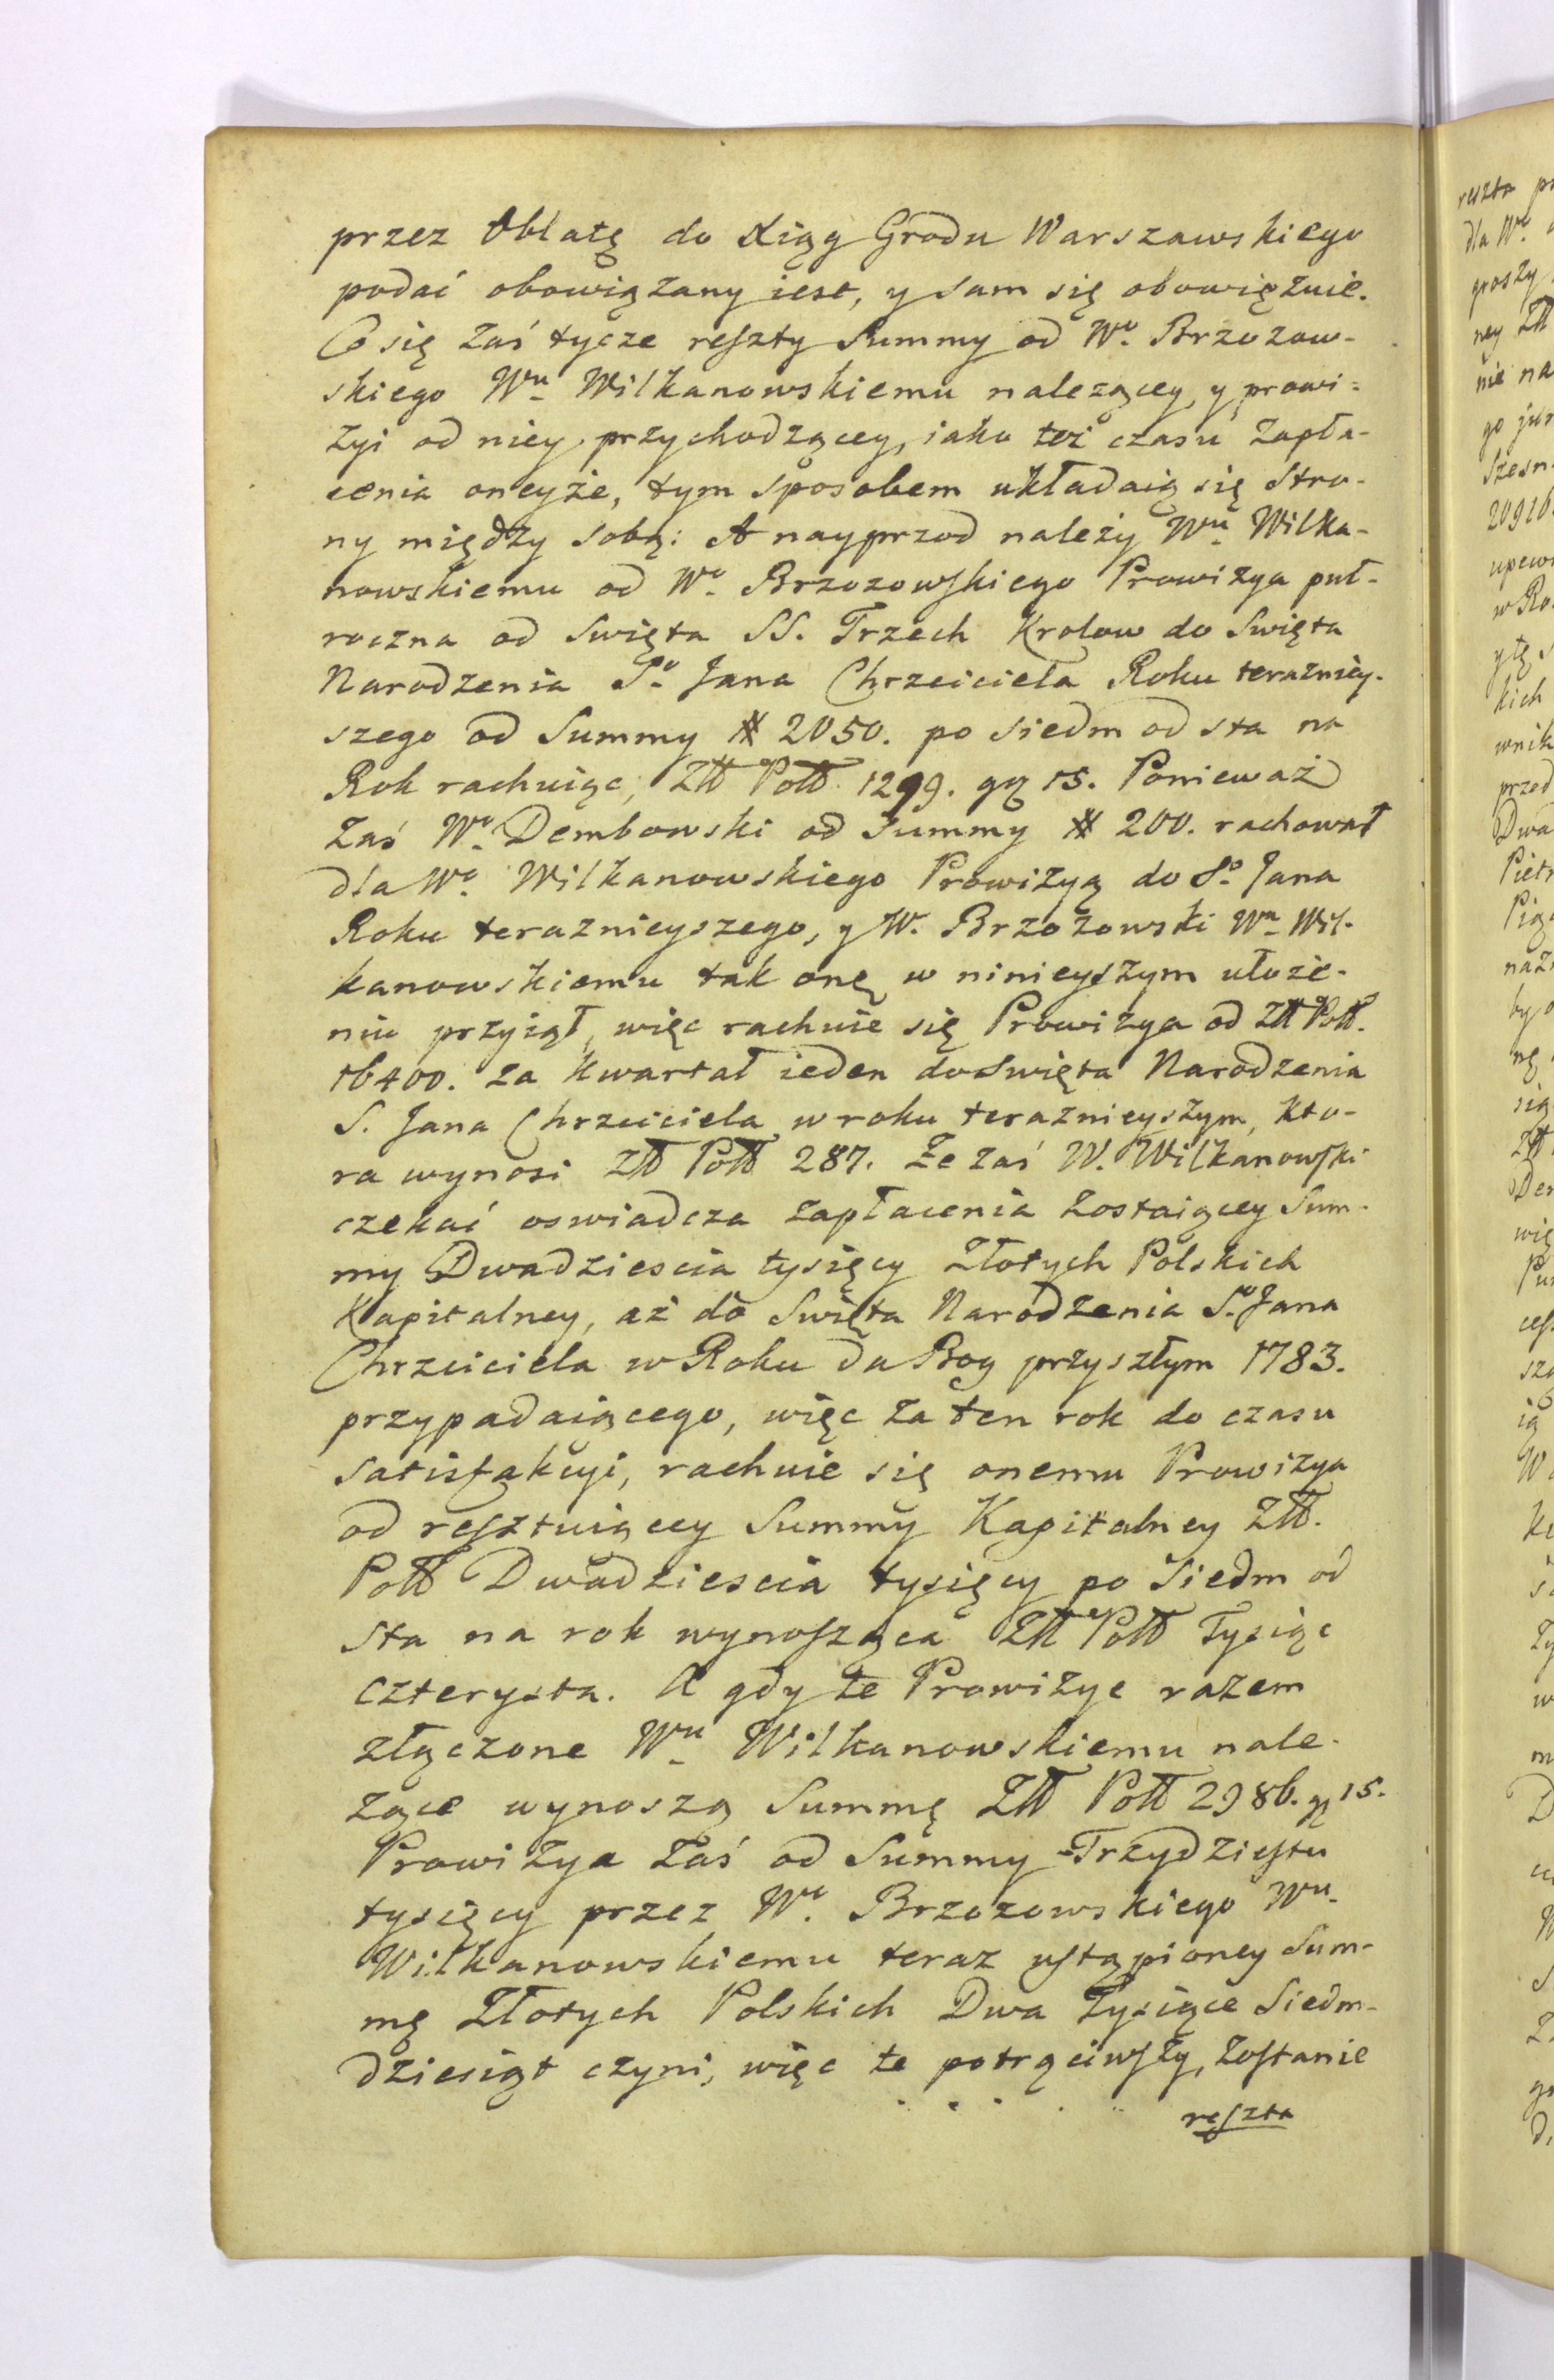 przez Oblatę do Xiąg Grodu Warszawskiego
podać obowiązany iest, y sam się obowięzuie.
Co się zaś tycze reſzty Summy od Wo. Brzozow-
skiego Wu Wilkanowskiemu nalezącey, y prowi-
zyi od niey przychodzącey, iako też czasu zapła-
cenia oneyże, tym sposobem układaią się stro-
ny między sobą: A nayprzod należy Wu Wilka-
nowskiemu od Wo. Brzozowſkiego Prowizya puł-
roczna od Swięta SS. Trzech Krolow do Swięta
Narodzenia So. Jana Chrzciciela Roku terazniey-
szego od Summy # 2050. po siedm od sta na
Rok rachuiąc, Złł Poll 1299. gg 15. Ponieważ
zaś Wo. Dembowski od Summy # 200. rachował
dla Wo. Wilkanowskiego Prowizyą do So. Jana
Roku teraznieyszego, y W. Brzozowski Wu Wil-
kanowskiemu tak onę w ninieyszym ułoże-
niu przyiął, więc rachuie się Prowizya od Złł Poll.
16400. za kwartał ieden do Swięta Narodzenia
S. Jana Chrzciciela w roku teraznieyszym, kto-
ra wynosi Złł Poll 287. Że zaś W. Wilkanowſki
czekać oswiadcza zapłacenia zostaiącey Sum-
my Dwadziescia tysięcy Złotych Polskich
Kapitalney, aż do Swięta Narodzenia So. Jana
Chrzciciela w Roku da Bog przyszłym 1783.
przypadaiącego, więc za ten rok do czasu
satisfakcyi, rachuie się onemu Prowizya
od reſztuiącey Summy Kapitalney Złł.
Poll Dwadziescia tysięcy po Siedm od
sta na rok wynoſząca Złł Poll Tysiąc
czterysta. A gdy te Prowizye razem
złączone Wu Wilkanowskiemu nale-
zące wynoszą Summę Złł Poll 2986. gg 15.
Prowizya zaś od Summy Trzydzieſtu
tysięcy przez Wo. Brzozowskiego Wu
Wilkanowskiemu teraz uſtąpioney Sum-
mę Złotych Polskich Dwa Tysiące Siedm-
dziesiąt czyni, więc te potrąciwſzy, zoſtanie
reſzta